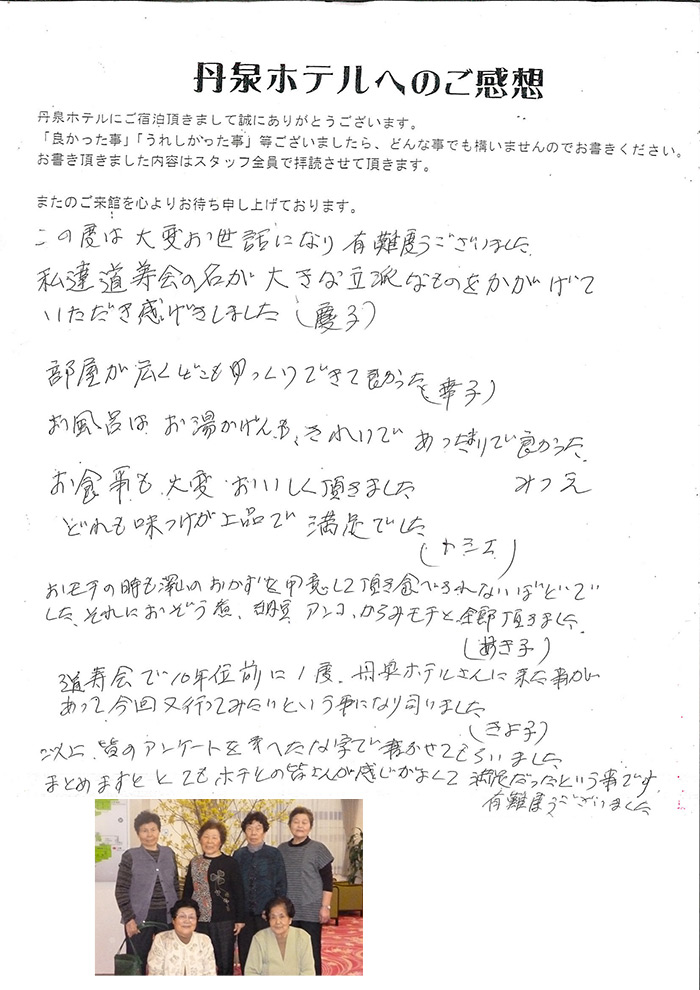 丹泉ホテルへのご感想
丹泉ホテルにご宿泊頂きまして誠にありがとうございます。
「良かった事」「うれしかった事」等ございましたら、どんな事でも構いませんのでお書きください。
お書き頂きました内容はスタッフ全員で拝読させて頂きます。
またのご来館を心よりお待ち申し上げております。
この度は大変お世話になり有難度うございました
私達道寿会の名が大きな立派なものをかかげて
いただき感げきしました(慶子)
部屋が広くとてもゆっくりできて良かった(幸子)
お風呂はお湯かげんも、きれいであったまりて良かった
みつえ
お食事も大変おいしく頂きました
どれも味つけが上品で満足でした
(カミエ)
おモチの時も沢山のおかずを用意して頂き食べきれないほどで
した、それにおぞう煮、納豆 アンコ、からみモチと全部頂きました
(あき子)
道寿会で10年位前に1度、丹泉ホテルさんに来た事があ
あって今回又行ってみたいという事になり伺いました
(きよ子)
以上、皆のアンケートを へたな字で書かせてもらいました
まとめますと とてもホテルの皆さんが感じがよくて満足だったという事です
有難度うございました